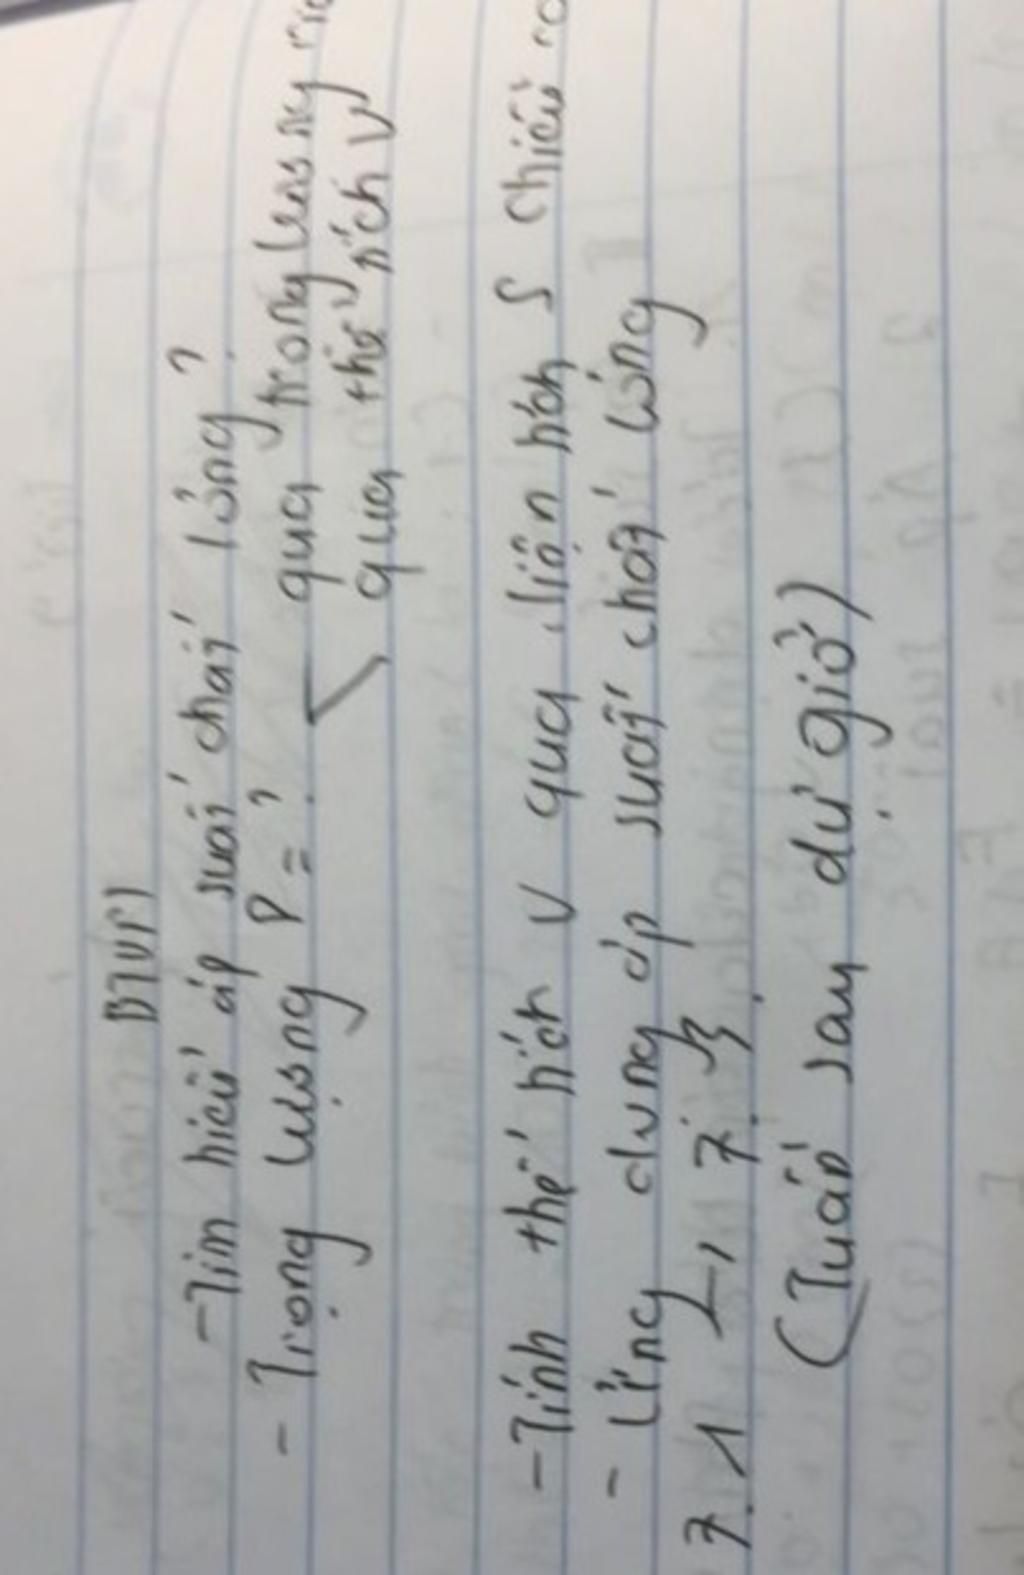 BTVN
- Tìm hiểu áp suất chất lỏng?
- Trọng lượng P = ? qua trọng lượng
qua thể tích V
- Tính thể tích V qua diện tích S chiều
- Ứng dụng áp suất chất lỏng
7.1 → 7.
(Tuần sau dự giờ)